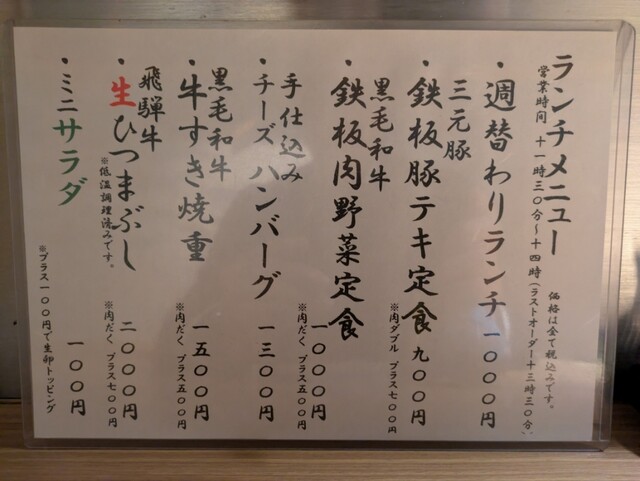 ランチメニュー
価格は全て税込みです。
営業時間 十一時三〇分〜十四時(ラストオーダー十三時三〇分)
・週替わりランチ 一〇〇〇円
三元豚
・鉄板豚テキ定食 九〇〇円
※肉ダブル プラス七〇〇円
黒毛和牛
・鉄板肉野菜定食 一〇〇〇円
※肉だく プラス五〇〇円
手仕込み
・チーズハンバーグ 一三〇〇円
黒毛和牛
・牛すき焼重 一五〇〇円
※肉だく プラス五〇〇円
飛騨牛
・生ひつまぶし 二〇〇〇円
※低温調理済みです。
※肉だく プラス七〇〇円
・ミニサラダ 一〇〇円
※プラス一〇〇円で生卵トッピング